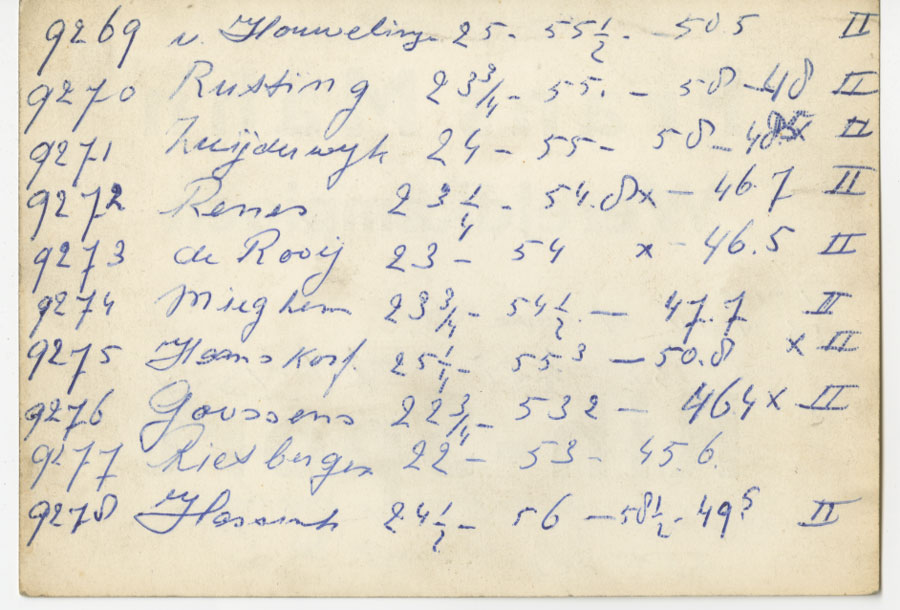 9269 v. Houwelinge 25 - 55 1/2 - 50.5 II
9270 Rusting 23 3/4 - 55. - 58 - 48 II
9271 Zuijderwyk 24 - 55 - 58 - II
9272 Renes 23 1/4 - 54.8 x - 46.7 II
9273 de Rooij 23 - 54 x - 46.5 II
9274 Mieghem 23 3/4 - 54 1/2 - 47.7 II
9275 25 1/4 - 55.3 - 50.8 x II
9276 Goossens 22 3/4 - 532 - 464 x II
9277 Rietbergen 22 - 53 - 45.6.
9278 24 1/2 - 56 - 58 1/2 - 49 5 II